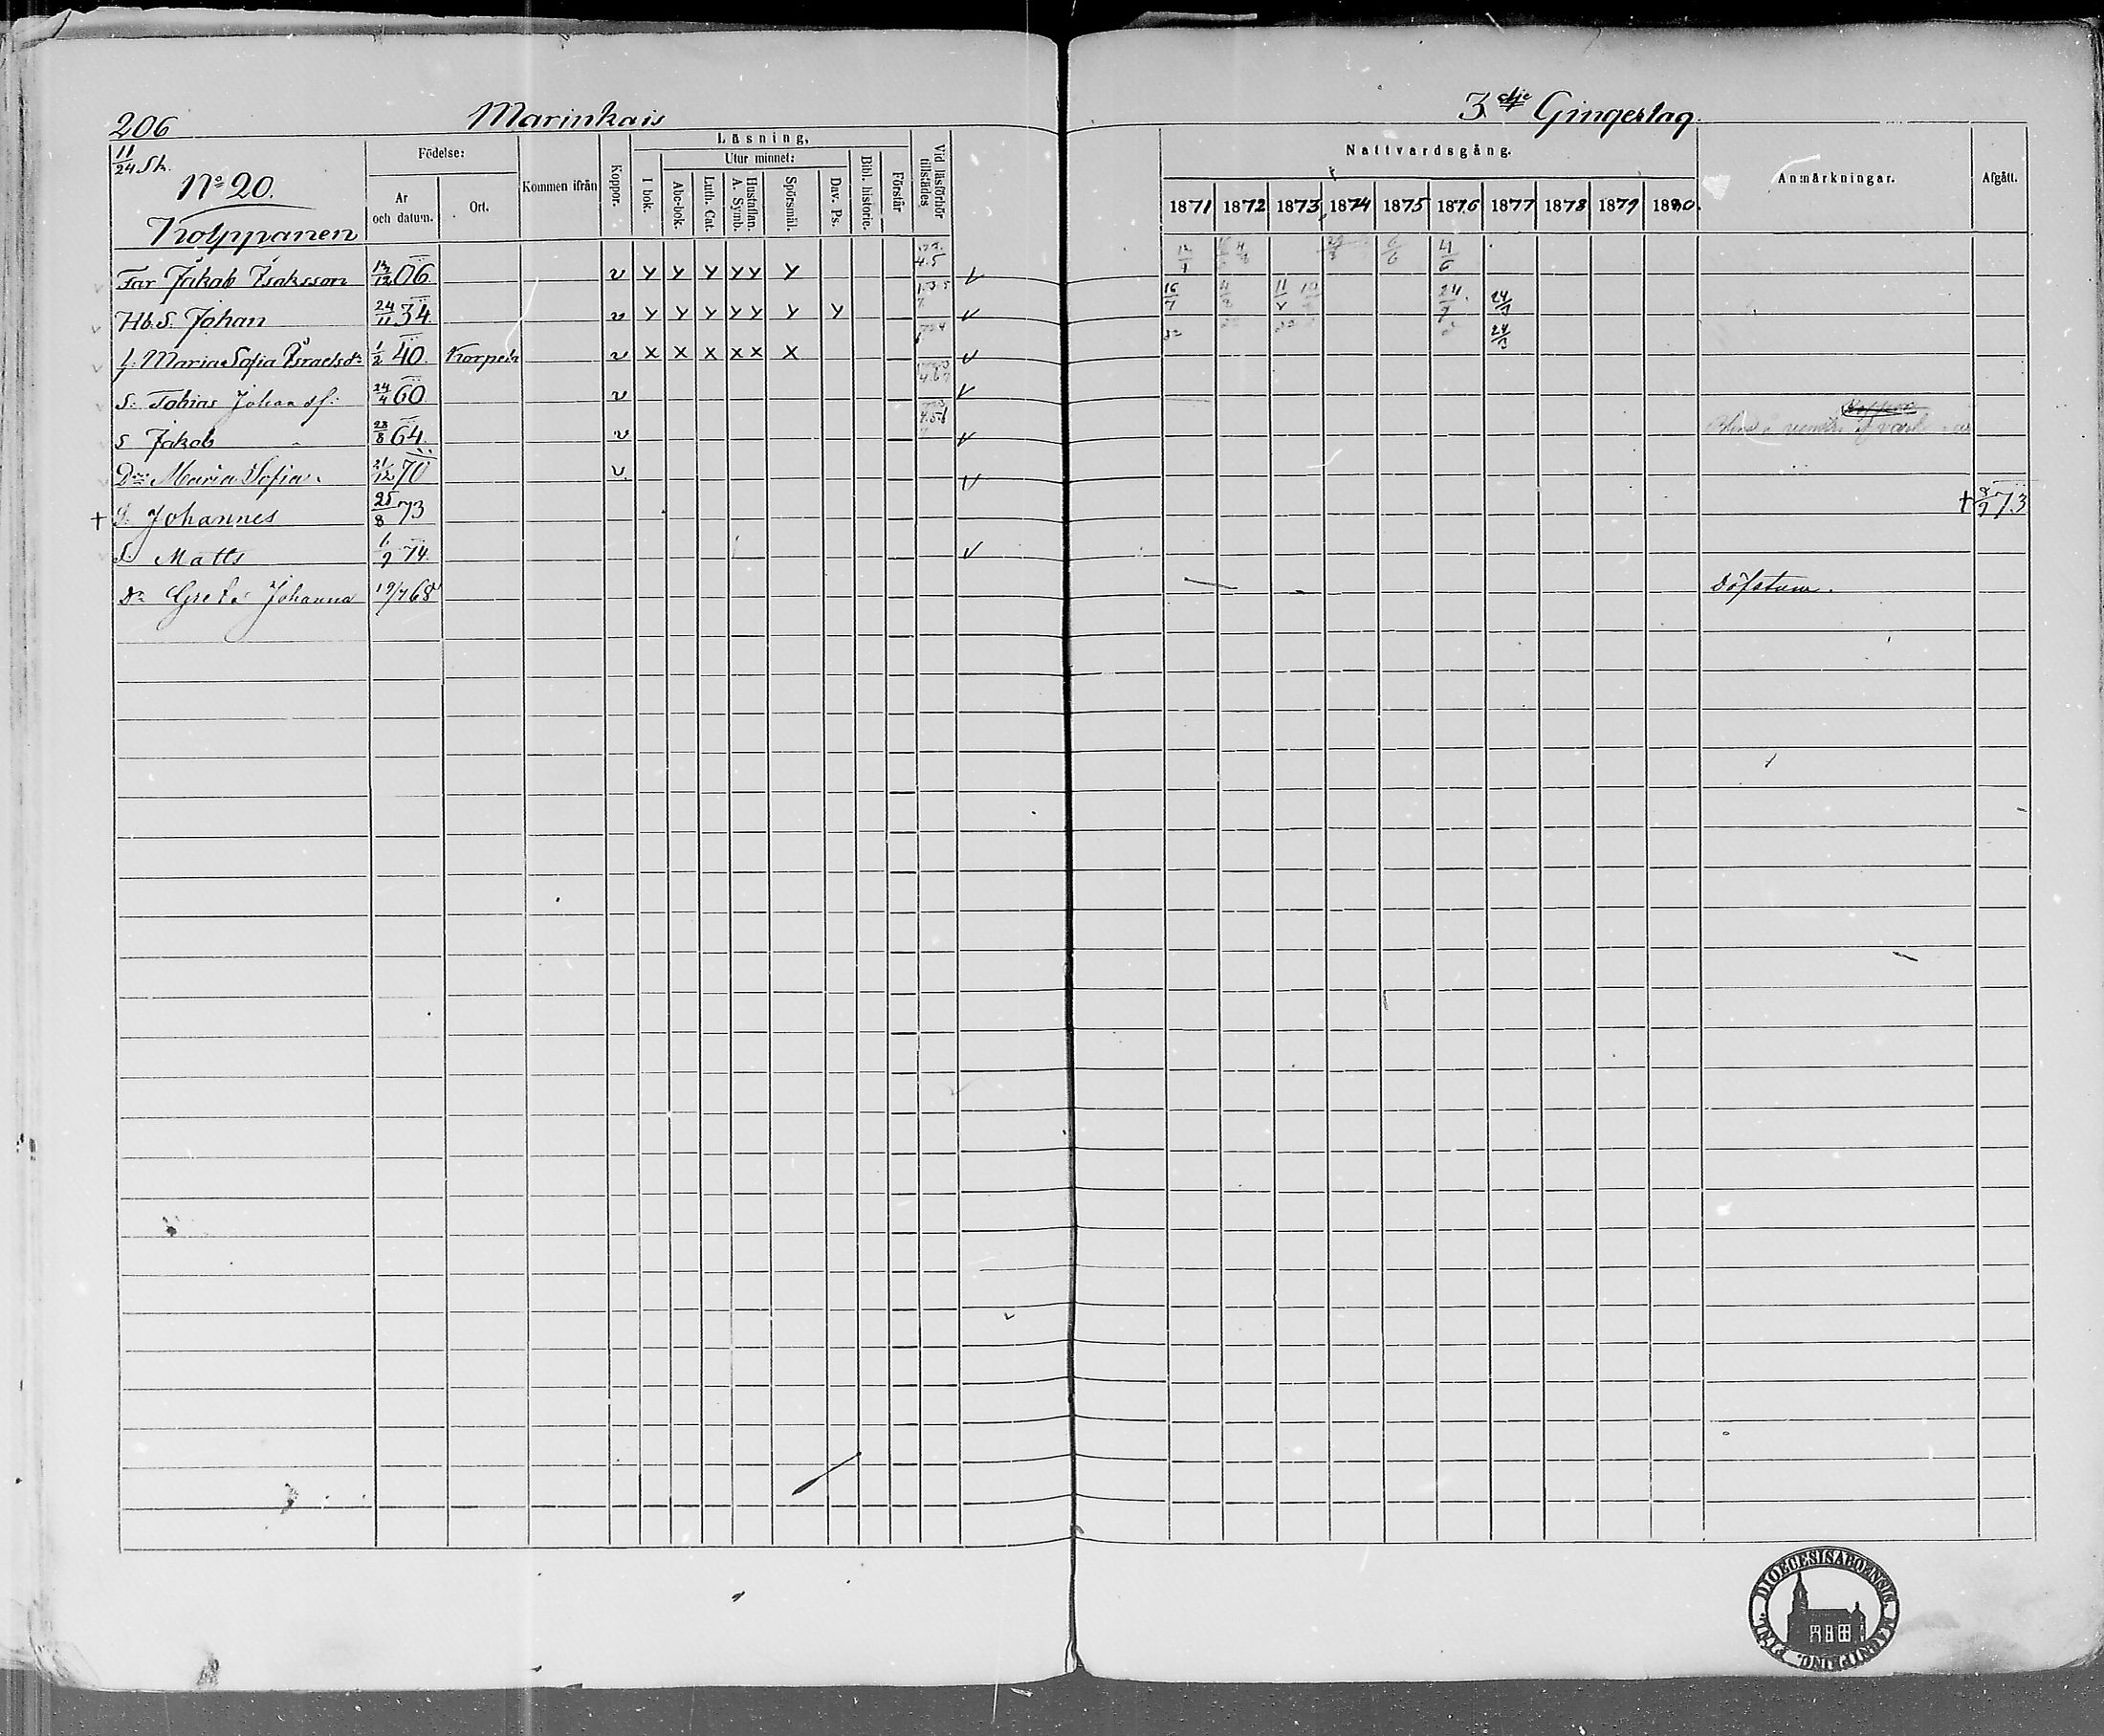 206 Marinkais 3dje Gingerlag.
11/24 Sk.
No 20.
Kolppanen
Födelse:
År och datum.
Ort.
Kommen ifrån
Koppor.
Läsning,
I bok.
Utur minnet:
Abc-bok.
Luth. Cat.
Hustaflan. A. Symb.
Spörsmål.
Dav. Ps.
Bibl. historie.
Förstår
Vid läsförhör tillstädes
Nattvardsgång.
1871 1872 1873 1874 1875 1876 1877 1878 1879 1880.
Anmärkningar.
Afgått.
Far Jakob Isaksson 12/12 06 v y y y y y y 4.5 v 4/6
Hb. S. Johan 24/11 34 v y y y y y y y v 16/7 4/8 24/9 24/3
h. Maria Sofia Israelsdr 1/2 40. Korpela v x x x x x x v 24/3
S. Tobias Johan sf. 24/4 60 v v
S Jakob 28/8 64. v v
Dr. Maria Sofia. 21/12 70 v. v
† S. Johannes 25/8 73 † 8/9 73
S. Matts 1/9 74. v
Dr Greta Johanna 19/7 68 Döfstum.
DIOECESIS ABOENSIS. MAGNI PRINC. FINL.